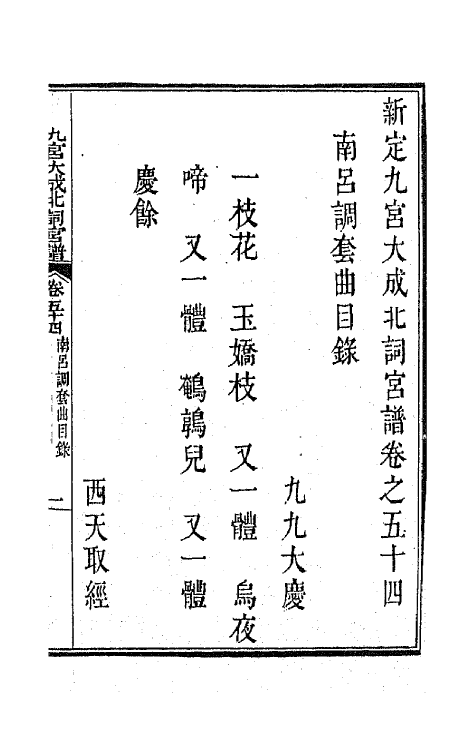 新定九宮大成北詞宮譜卷之五十四
南呂調套曲目錄
九九大慶
一枝花　玉嬌枝　又一體　烏夜
啼　又一體　鵪鶉兒　又一體
慶餘
西天取經
九宮大成北詞宮譜　卷五十四　南呂調套曲目錄　一